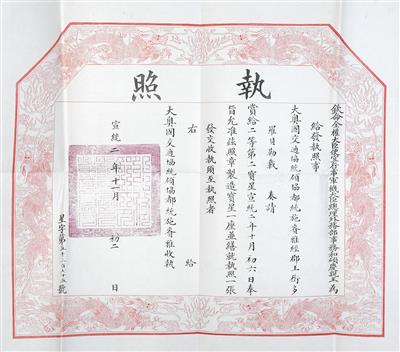 執照
欽命全權大臣便宜行事軍機大臣總理外務部事務和碩慶親王 為
給發執照事
大奧國交通協統領協都統施齊雅經郡王銜多
羅貝勒載 奏請
賞給二等第二寶星宣統二年十月初六日奉
旨允准茲照章製造寶星一座並繕就執照一張
發交收執須至執照者
右 給
大奧國交通協統領協都統施齊雅收執
宣統二年十一月 初二 日
星字第五千 百七十五號